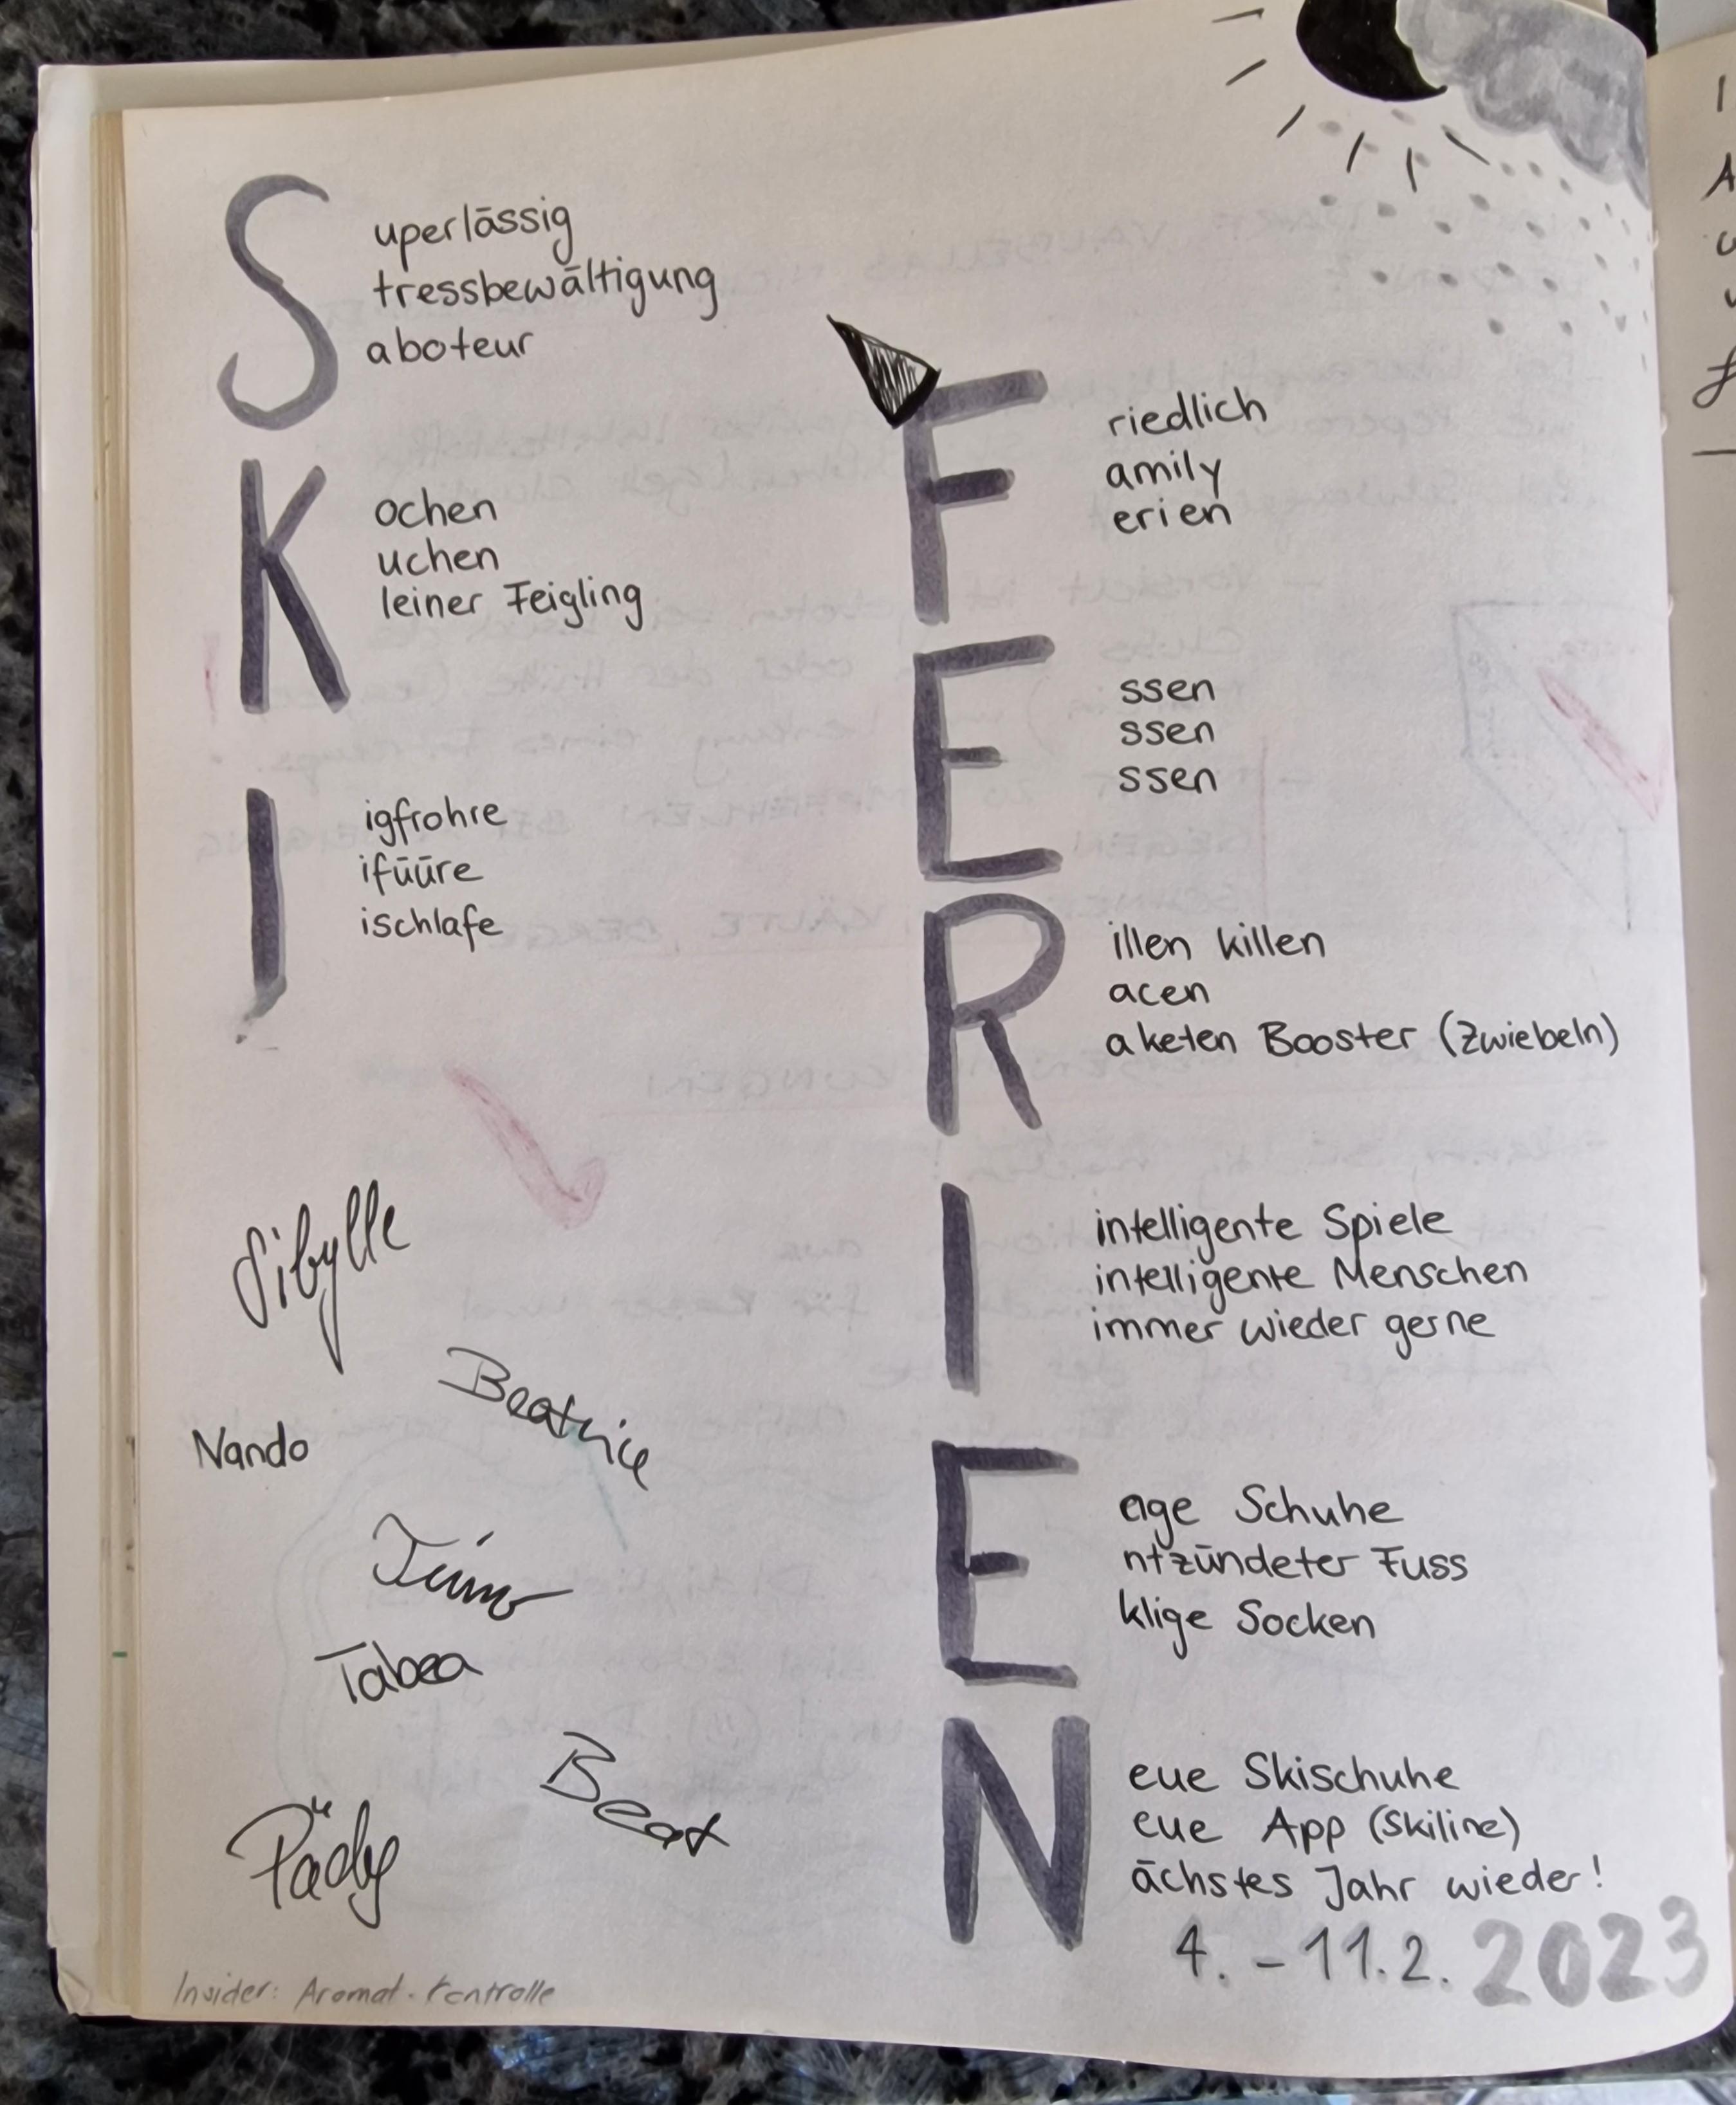 S
uperlässig
tressbewältigung
aboteur
K
ochen
uchen
leiner Feigling
I
igfrohre
ifüüre
ischlafe
F
riedlich
amily
erien
E
ssen
ssen
ssen
R
illen killen
acen
aketen Booster (Zwiebeln)
I
intelligente Spiele
intelligente Menschen
immer wieder gerne
E
nge Schuhe
ntzündeter Fuss
klige Socken
N
eue Skischuhe
eue App (Skiline)
ächstes Jahr wieder!
4. - 11.2. 2023
Sibylle
Beatrice
Nando
Timo
Tabea
Beat
Pädy
Insider: Aromat-Kontrolle